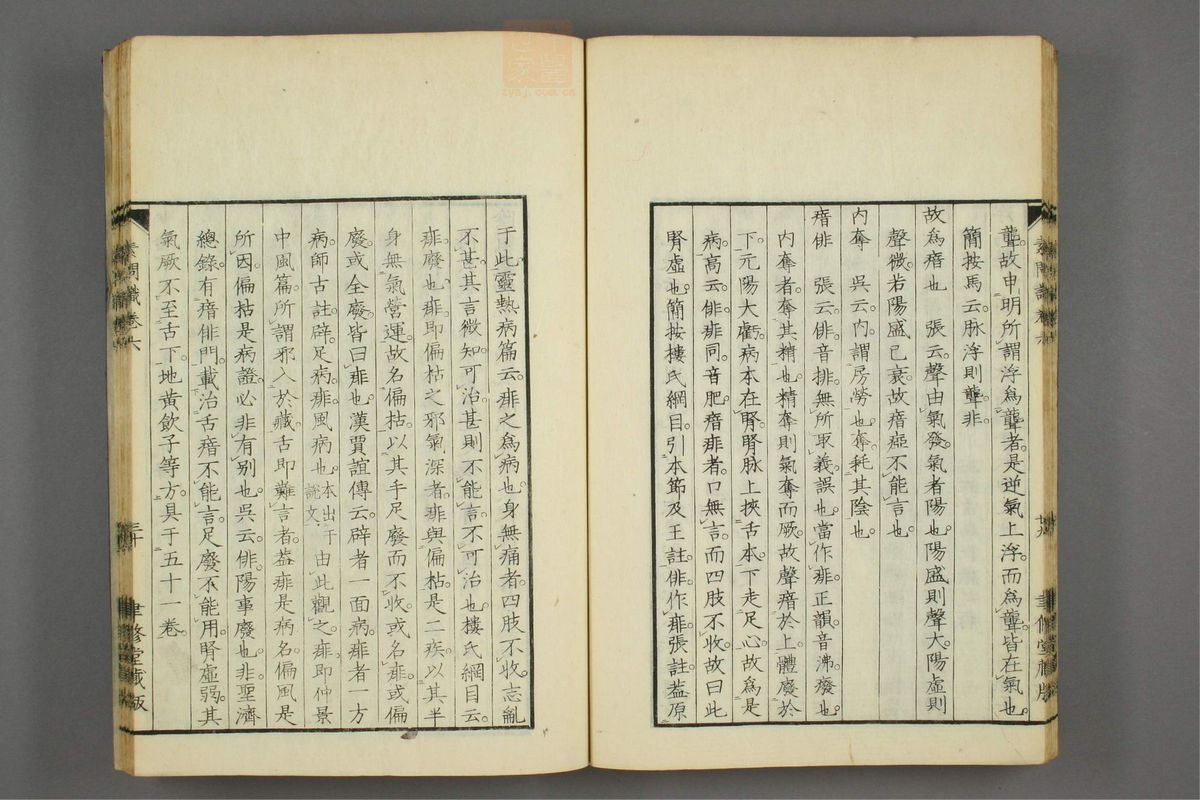 聾故申明所謂浮爲聾者是逆氣上浮而爲聾皆在氣也
簡按馬云脉浮則聾非
故爲瘖也 張云聲由氣發氣者陽也陽盛則聲大陽虛則
聲微若陽盛已衰故瘖瘂不能言也
內奪 吳云內謂房勞也奪耗其陰也
瘖俳 張云俳音排無所取義誤也當作痱正韻音沸癈也
內奪者奪其精也精奪則氣奪而厥故聲瘖於上體廢於
下元陽大虧病本在腎腎脉上挾舌本下走足心故爲是
病高云俳痱同音肥瘖痱者口無言而四肢不收故曰此
腎虛也簡按樓氏綱目引本節及王註俳作痱張註葢原
于此靈熱病篇云痱之爲病也身無痛者四肢不收志亂
不甚其言微知可治甚則不能言不可治也樓氏綱目云
痱廢也痱即偏枯之邪氣深者痱與偏枯是二疾以其半
身無氣營運故名偏枯以其手足廢而不收或名痱或偏
廢或全廢皆曰痱也漢賈誼傳云辟者一面病痱者一方
病師古註辟足病痱風病也本出于說文由此觀之痱即仲景
中風篇所謂邪入於藏舌即難言者葢痱是病名偏風是
所因偏枯是病證必非有別也吳云俳陽事廢也非聖濟
總錄有瘖俳門載治舌瘖不能言足廢不能用腎虛弱其
氣厥不至舌下地黃飲子等方具于五十一卷
素問識卷六
三十
聿修堂藏版